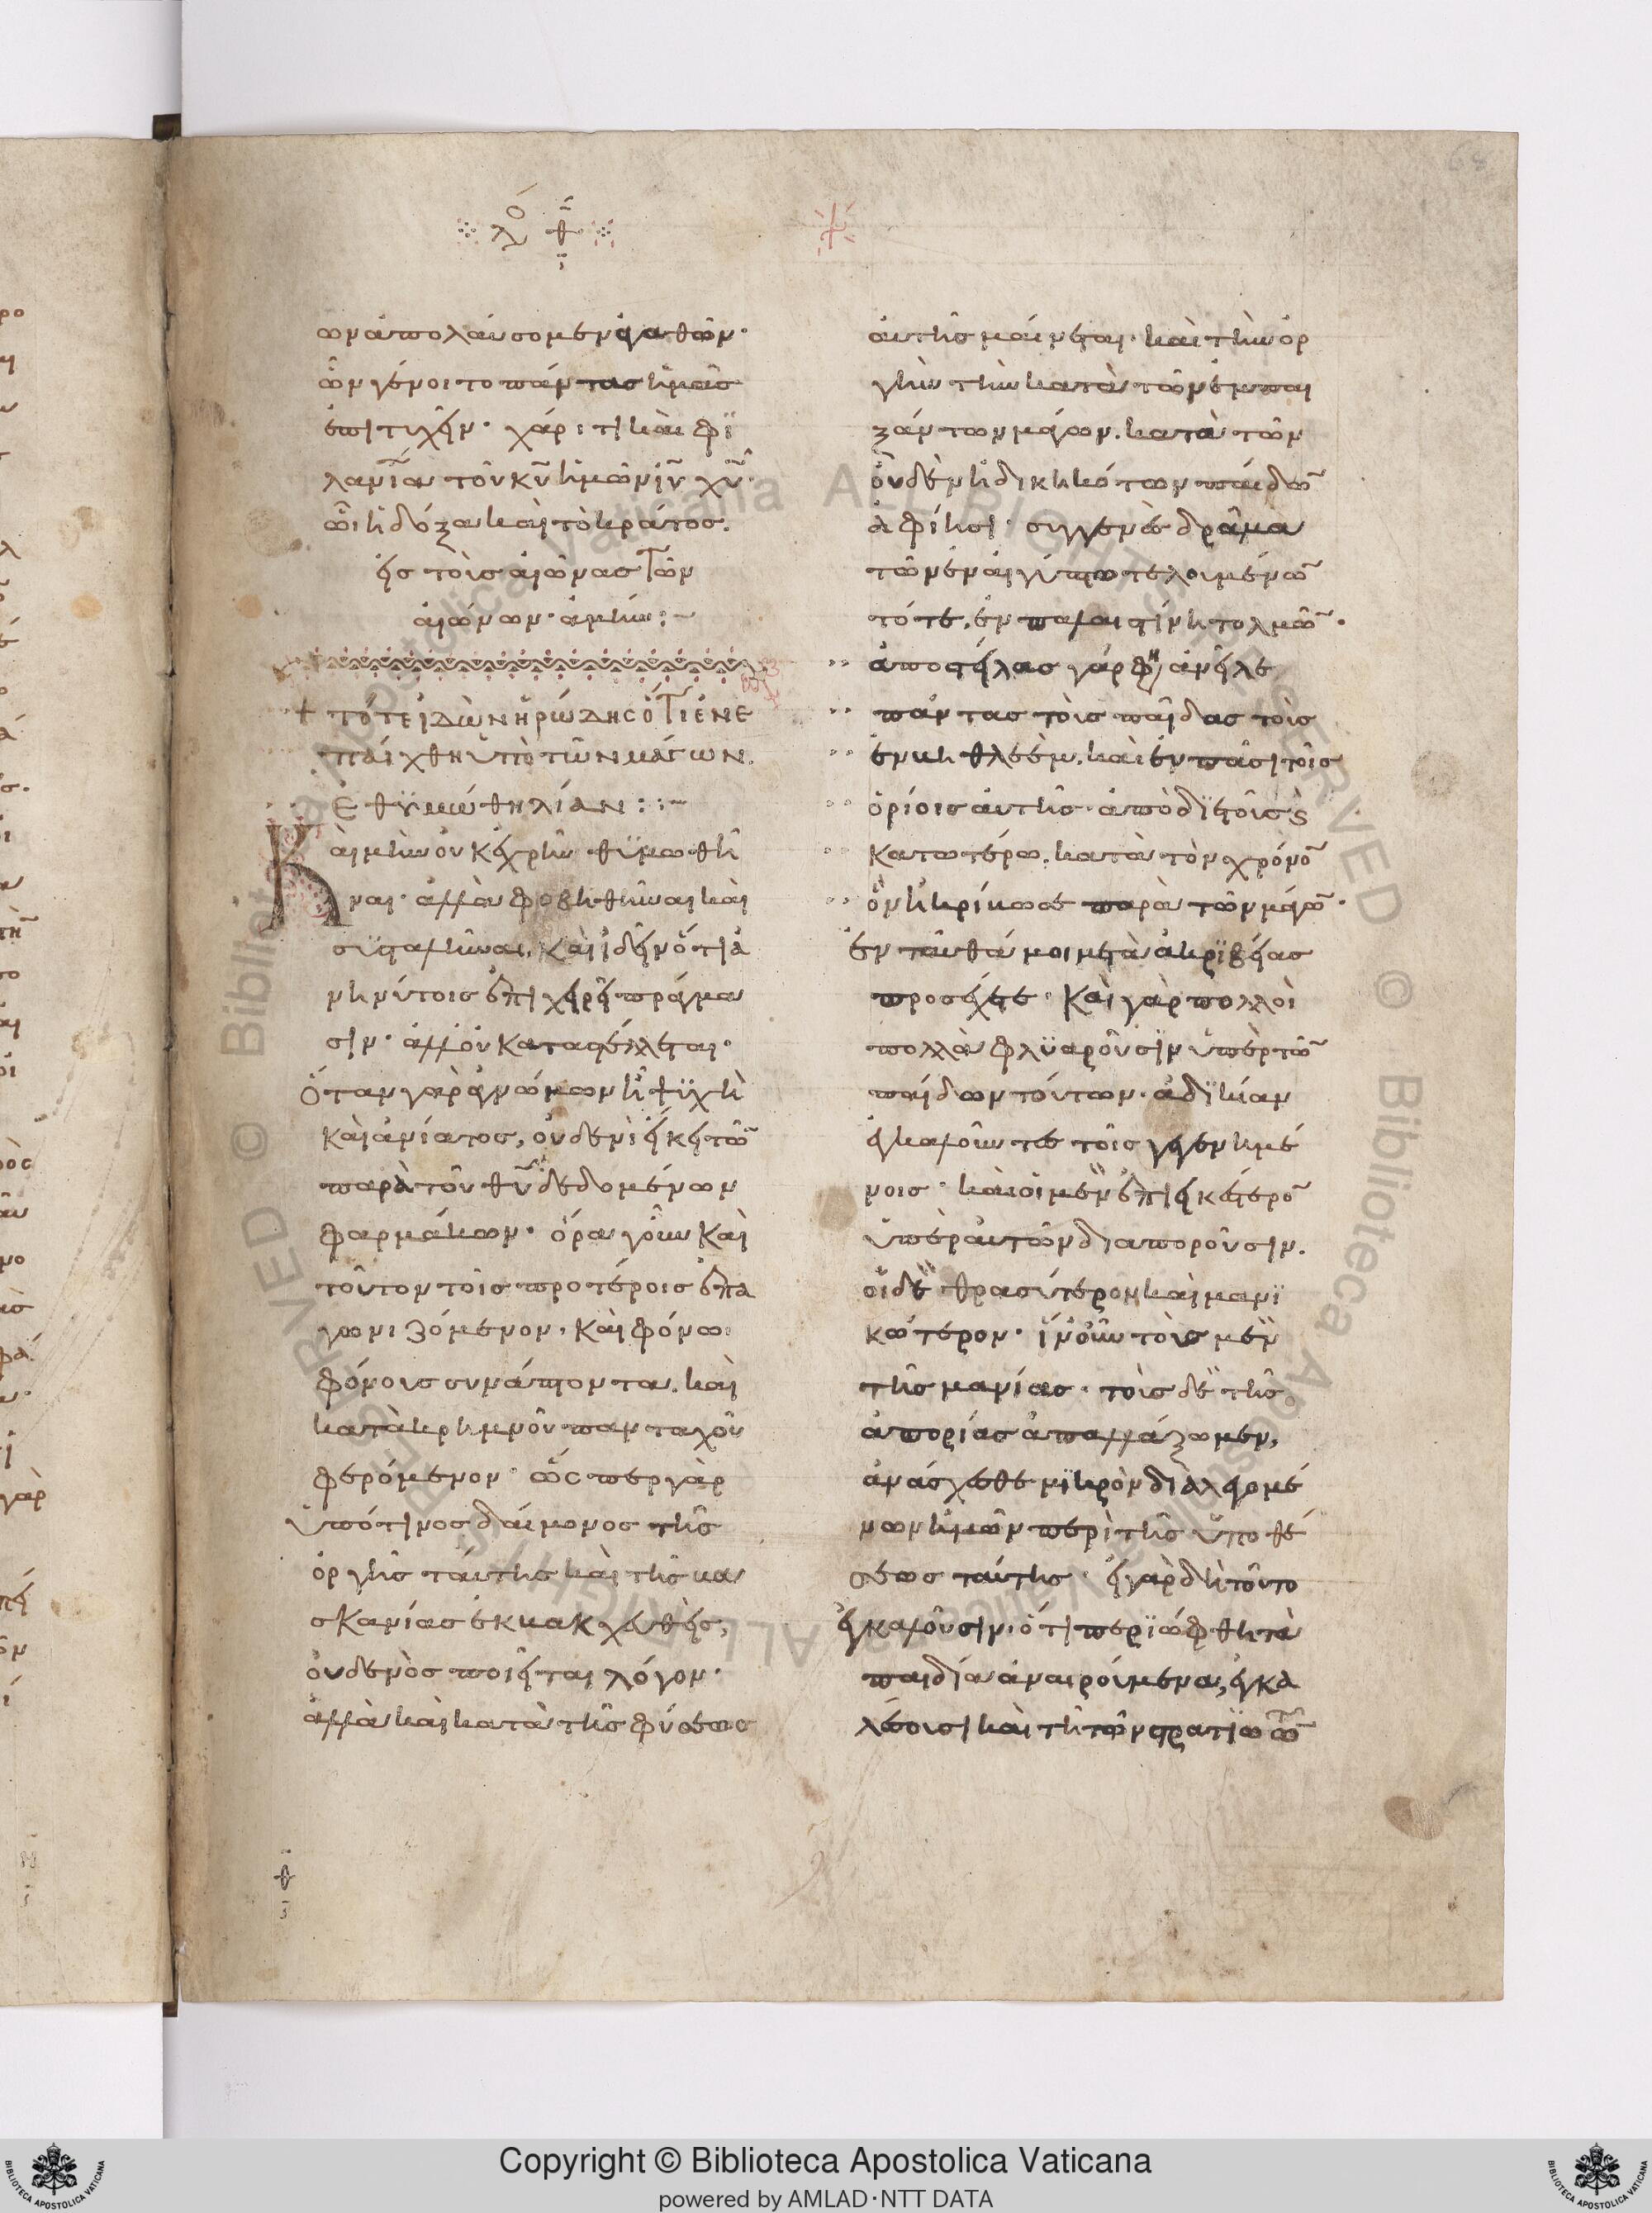 λό θ̄
ων ἀπολαύσομεν ἀγαθῶν·
ὧν γένοιτο πάντας ἡμᾶς
ἐπιτυχεῖν· χάριτι καὶ φι
λανΐα τοῦ κῦ ἡμῶν ἰῦ χῦ·
ὧι ἡ δόξα καὶ τὸ κράτος.
εἰς τοὺς αἰῶνας τῶν
αἰώνων· ἀμήν:~
+ τότε ἰδὼν ἡρώδης ὅτι ἐνε
παίχθη ὑπὸ τῶν μάγων.
ἐθϋμώθη λίαν:~
Καὶ μὴν οὐκ ἐχρῆν θϋμωθῆ
ναι· ἀλλὰ φοβηθῆναι καὶ
συσταλῆναι, καὶ ἰδεῖν ὅτι ἀ
νηνύτοις ἐπιχειρεῖ πράγμα
σιν· ἀλλ οὐ καταστέλλεται·
ὅταν γὰρ ἀγνώμων ἦ ψϋχὴ
καὶ ἀνίατος, οὐδενὶ εἴκει τῶ̄
παρὰ τοῦ θῦ δεδομένων
φαρμάκων· ὅρα γοῦν καὶ
τοῦτον τοῖς προτέροις ἐπα
γωνιζόμενον, καὶ φόνω
φόνους συνάπτοντα. καὶ
κατὰ κρημνοῦ πανταχοῦ
φερόμενον· ὥς περ γὰρ
ὑπό τινος δαίμονος τῆς
ὀργῆς ταύτης καὶ τῆς βα
σκανίας ἐκβακχευθεὶς,
οὐδενὸς ποιεῖται λόγον·
ἀλλὰ καὶ κατὰ τῆς φύσεως
αὐτῆς μαίνεται· καὶ τὴν ὀρ
γὴν τὴν κατὰ τῶν ἐμπαι
ξάντων μάγων. κατὰ τῶν
οὐδὲν ἠδικηκότων παίδω̄
ἀφίησι· συγγενὲς δρᾶμα
τῶν ἐν αἰγύπτω τελουμένω̄
τότε, ἐν παλαιστίνη τολμῶ̄·
ἀποστείλας γάρ φη, ἀνεῖλε
πάντας τοὺς παῖδας τοὺς
ἐν βηθλεὲμ. καὶ ἐν πᾶσι τοῖς
ὁρίοις αὐτῆς· ἀπὸ διετοῦς ϗ
κατωτέρω. κατὰ τὸν χρόνο̄
ὃν ἠκρίβωσε παρὰ τῶν μάγω̄·
ἐνταῦθά μοι μετὰ ἀκρϊβείας
προσέχετε· καὶ γὰρ πολλοὶ
πολλὰ φλϋαροῦσιν ὑπὲρ τῶ̄
παίδων τούτων· ἀδϊκίαν
ἐγκαλοῦντες τοῖς γεγενημέ
νοις· καὶ οἱ μὲν ἐπιεικέστερο̄
ὑπὲρ αὐτῶν διαποροῦσιν.
οἱ δὲ θρασύτερον καὶ μανϊ
κώτερον· ἵν οὖν τοὺς μὲν
τῆς μανίας· τοὺς δὲ τῆς
ἀπορίας ἀπαλλάξωμεν,
ἀνάσχεσθε μϊκρὸν διαλεγομέ
νων ἡμῶν περὶ τῆς ὑποθέ
σεως ταύτης· εἰ γὰρ δὴ τοῦτο
ἐγκαλοῦσιν, ὅτι περϊώφθη τὰ
παιδία ἀναιρούμενα, ἐγκα
λέσουσι καὶ τῆ τῶν στρατϊωτῶ̄
θ̄
Copyright © Biblioteca Apostolica Vaticana
powered by AMLAD·NTT DATA